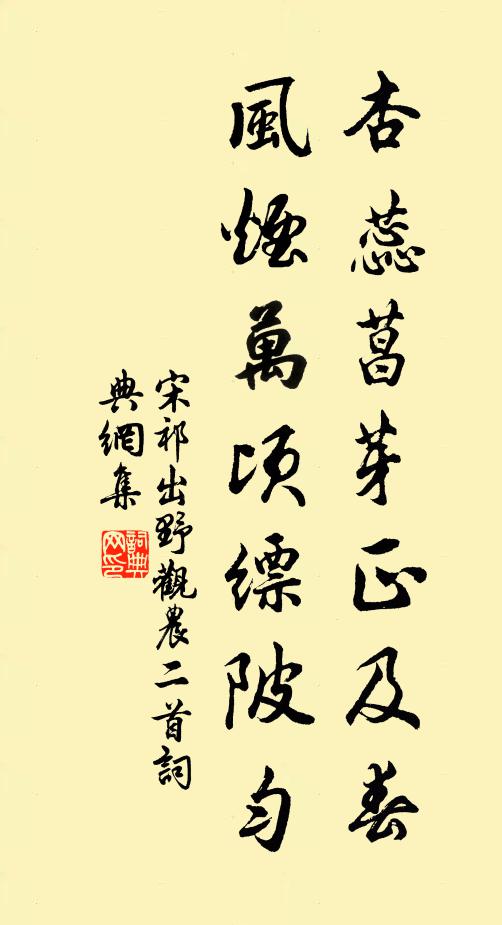 杏蕊菖芽正及春
風煙萬頃縹陂勻
宋祁出野觀農二首詞
典網集
詞典網印